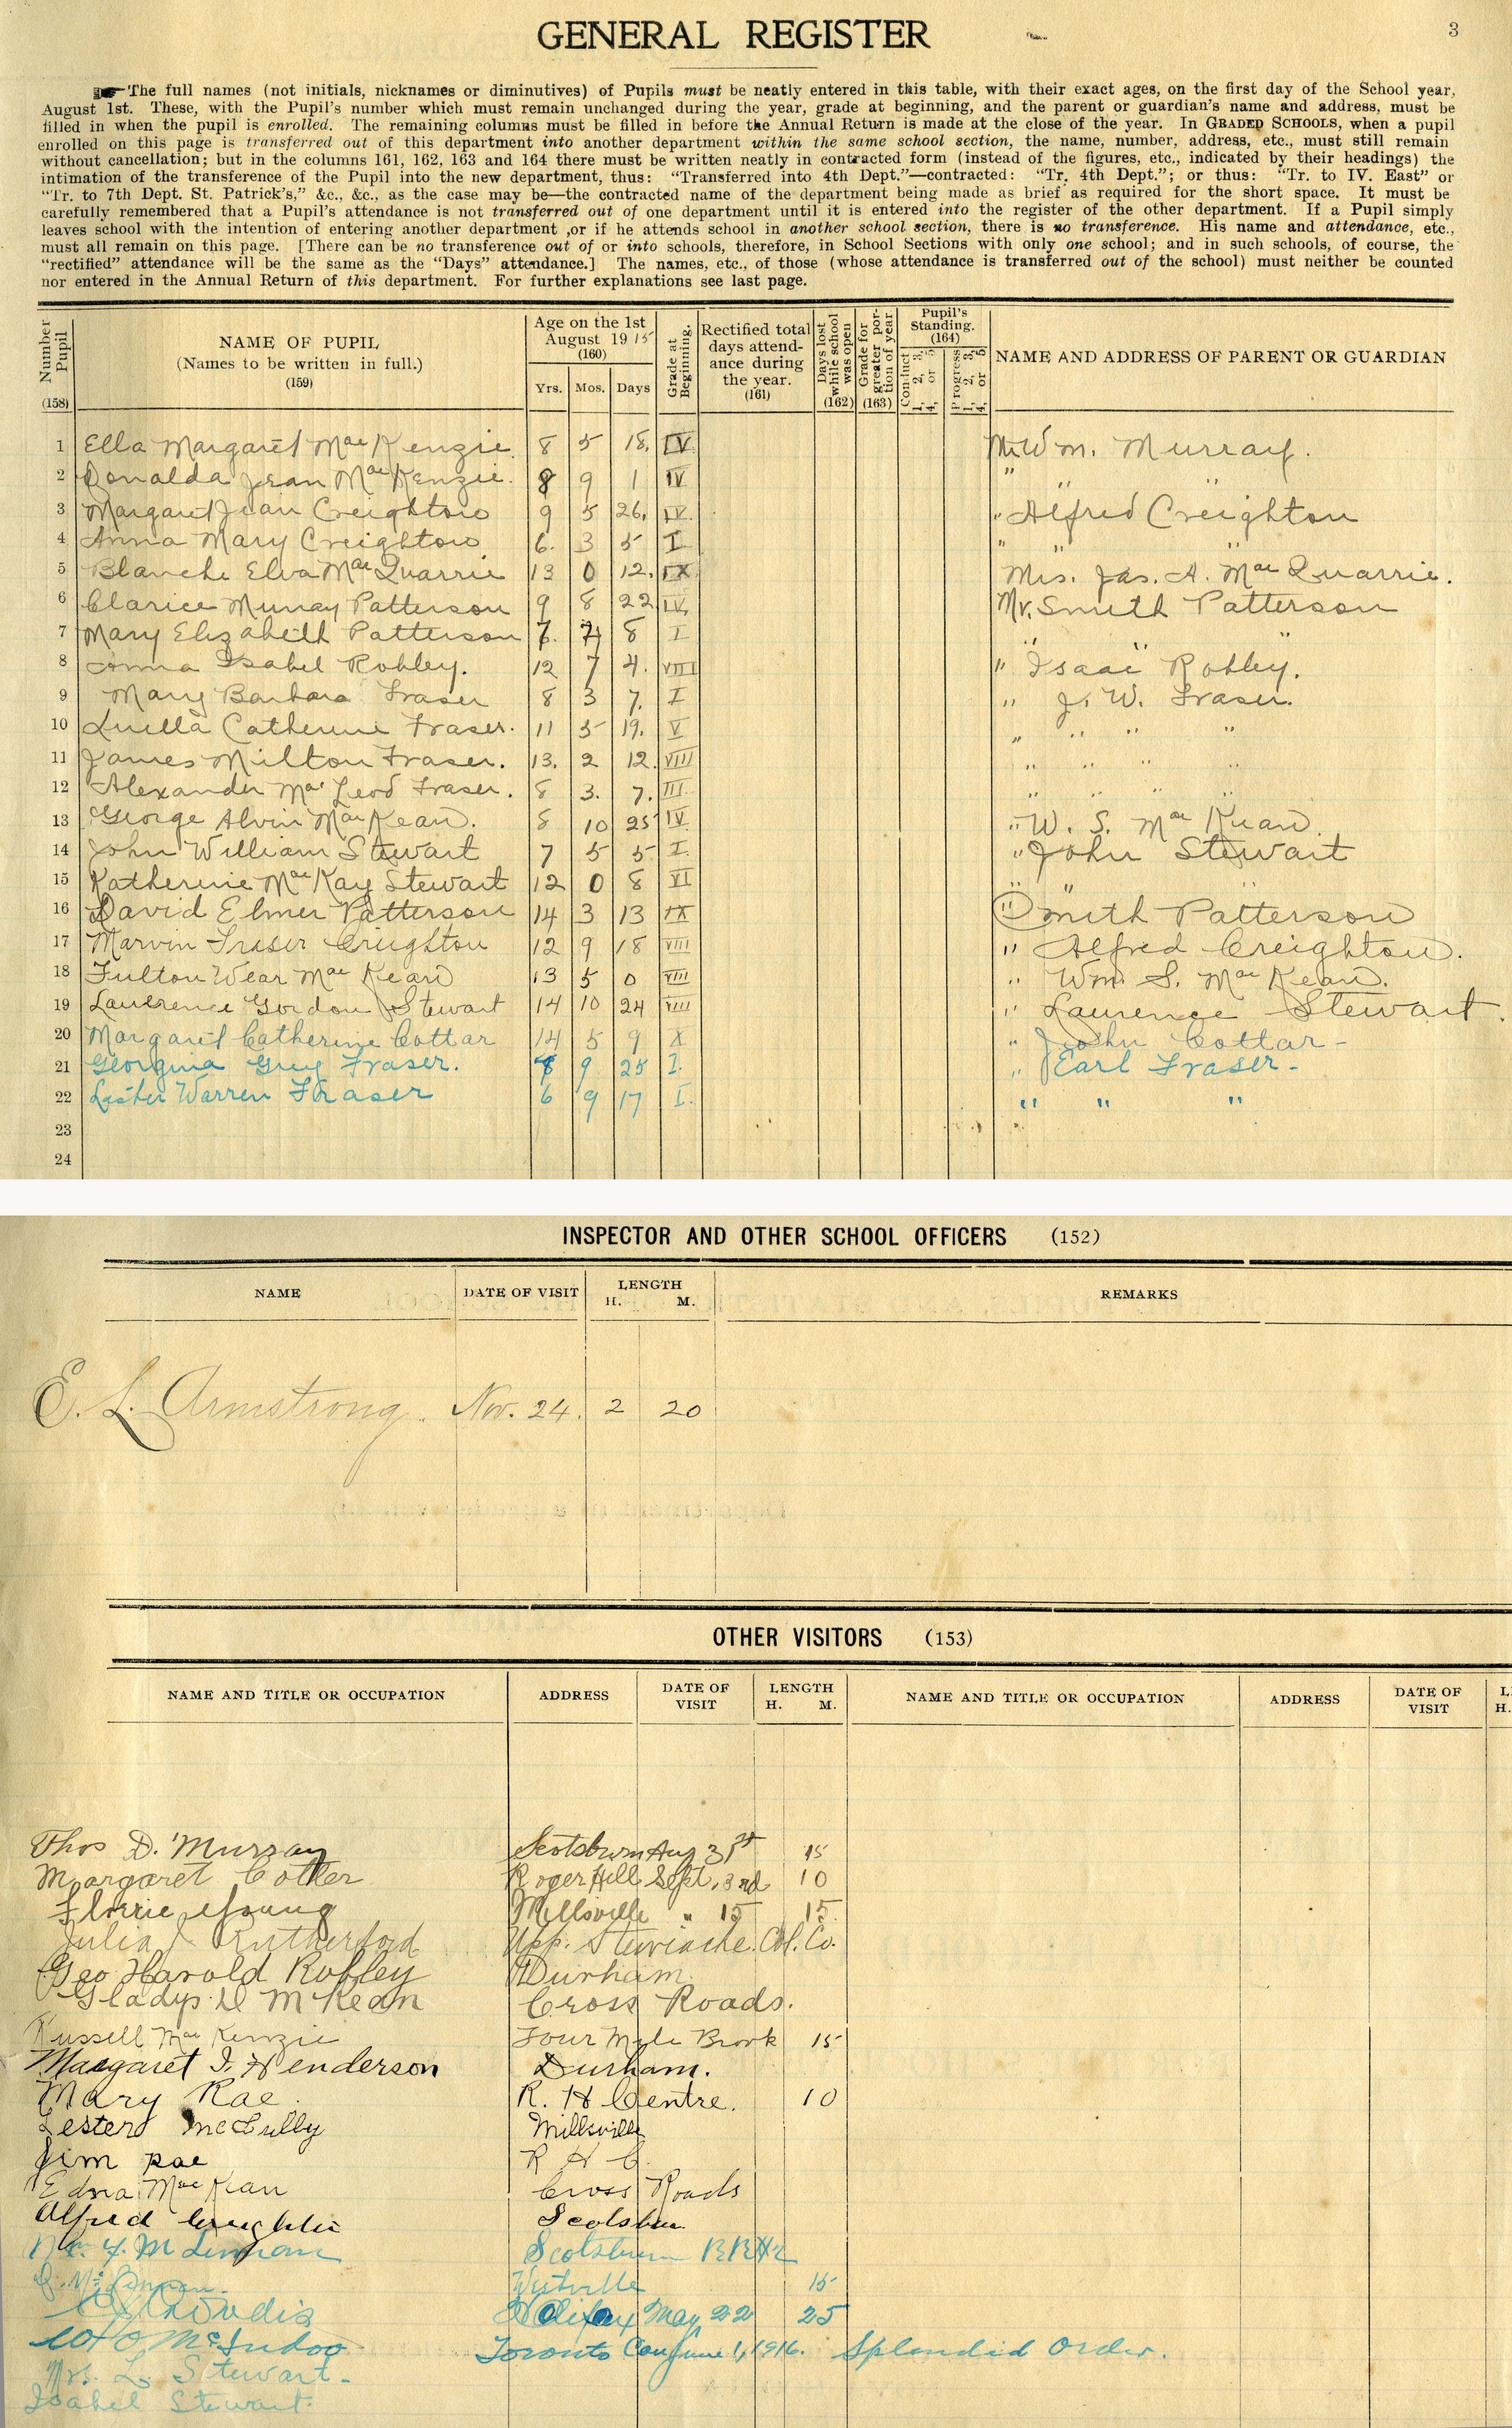 GENERAL REGISTER
3
☛The full names (not initials, nicknames or diminutives) of Pupils must be neatly entered in this table, with their exact ages, on the first day of the School year,
August 1st. These, with the Pupil's number which must remain unchanged during the year, grade at beginning, and the parent or guardian's name and address, must be
filled in when the pupil is enrolled. The remaining columns must be filled in before the Annual Return is made at the close of the year. In GRADED SCHOOLS, when a pupil
enrolled on this page is transferred out of this department into another department within the same school section, the name, number, address, etc., must still remain
without cancellation; but in the columns 161, 162, 163 and 164 there must be written neatly in contracted form (instead of the figures, etc., indicated by their headings) the
intimation of the transference of the Pupil into the new department, thus: "Transferred into 4th Dept."—contracted: "Tr. 4th Dept."; or thus: "Tr. to IV. East" or
"Tr. to 7th Dept. St. Patrick's," &c., &c., as the case may be—the contracted name of the department being made as brief as required for the short space. It must be
carefully remembered that a Pupil's attendance is not transferred out of one department until it is entered into the register of the other department. If a Pupil simply
leaves school with the intention of entering another department ,or if he attends school in another school section, there is no transference. His name and attendance, etc.,
must all remain on this page. [There can be no transference out of or into schools, therefore, in School Sections with only one school; and in such schools, of course, the
"rectified" attendance will be the same as the "Days" attendance.] The names, etc., of those (whose attendance is transferred out of the school) must neither be counted
nor entered in the Annual Return of this department. For further explanations see last page.
Number Pupil (158)
NAME OF PUPIL (Names to be written in full.) (159)
Age on the 1st August 1915 (160)
Yrs. Mos. Days
Grade at Beginning.
Rectified total days attendance during the year. (161)
Days lost while school was open (162)
Grade for greater portion of year (163)
Pupil's Standing. (164)
Conduct 1, 2, 3, 4, or 5
Progress 1, 2, 3, 4, or 5
NAME AND ADDRESS OF PARENT OR GUARDIAN
1 Ella Margaret MacKenzie. 8 5 18. IV Mr Wm. Murray.
2 Donalda Jean MacKenzie. 8 9 1 IV " " "
3 Margaret Jean Creighton 9 5 26. IV. " Alfred Creighton
4 Anna Mary Creighton 6. 3 5 I " " "
5 Blanche Elva MacQuarrie 13 0 12. IX Mrs. Jas. A. MacQuarrie.
6 Clarice Murray Patterson 9 8 22 IV. Mr. Smith Patterson
7 Mary Elizabeth Patterson 7. 8 I " " "
8 Anna Isabel Robley. 12 7 4. VIII " Isaac Robley.
9 Mary Barbara Fraser 8 3 7. I " J. W. Fraser.
10 Luella Catherine Fraser. 11 5 19. V " " " "
11 James Milton Fraser. 13. 2 12. VIII " " " "
12 Alexander MacLeod Fraser. 8 3. 7. III. " " " "
13 George Alvin MacKean. 8 10 25 IV " W. S. MacKean.
14 John William Stewart 7 5 5 I. " John Stewart
15 Katherine MacKay Stewart 12 0 8 VI " " "
16 David Elmer Patterson 14 3 13 IX " Smith Patterson
17 Marvin Fraser Creighton 12 9 18 VIII " Alfred Creighton.
18 Fulton Wear MacKean 13 5 0 VIII " Wm. S. MacKean.
19 Laurence Gordon Stewart 14 10 24 VIII " Laurence Stewart.
20 Margaret Catherine Cottar 14 5 9 X " John Cottar -
21 Georgina Greig Fraser. 8 9 25 I. " Earl Fraser -
22 Lester Warren Fraser 6 9 17 I. " " "
23
24
INSPECTOR AND OTHER SCHOOL OFFICERS (152)
NAME DATE OF VISIT LENGTH H. M. REMARKS
E. L. Armstrong. Nov. 24. 2 20
OTHER VISITORS (153)
NAME AND TITLE OR OCCUPATION ADDRESS DATE OF VISIT LENGTH H. M. NAME AND TITLE OR OCCUPATION ADDRESS DATE OF VISIT L H.
Thos D. Murray Scotsburn Aug 31st 15
Margaret Cotter Roger Hill Sept. 3rd 10
Florrie Young Millsville " 15 15
Julia Rutherford Upp. Stewiacke. Col. Co.
Geo Harold Robley Durham
Gladys D McKean Cross Roads.
Russell MacKenzie Four Mile Brook 15
Margaret I. Henderson Durham.
Mary Rae. R. H Centre. 10
Lester McCully Millsville
Jim Rae R H C.
Edna MacKean Cross Roads
Alfred Creighton Scotsburn
Scotsburn RR#2
Westville 15
Halifax May 22 25
Toronto Can June 1, 1916. Splendid Order.
Mrs. L. Stewart -
Isabel Stewart.